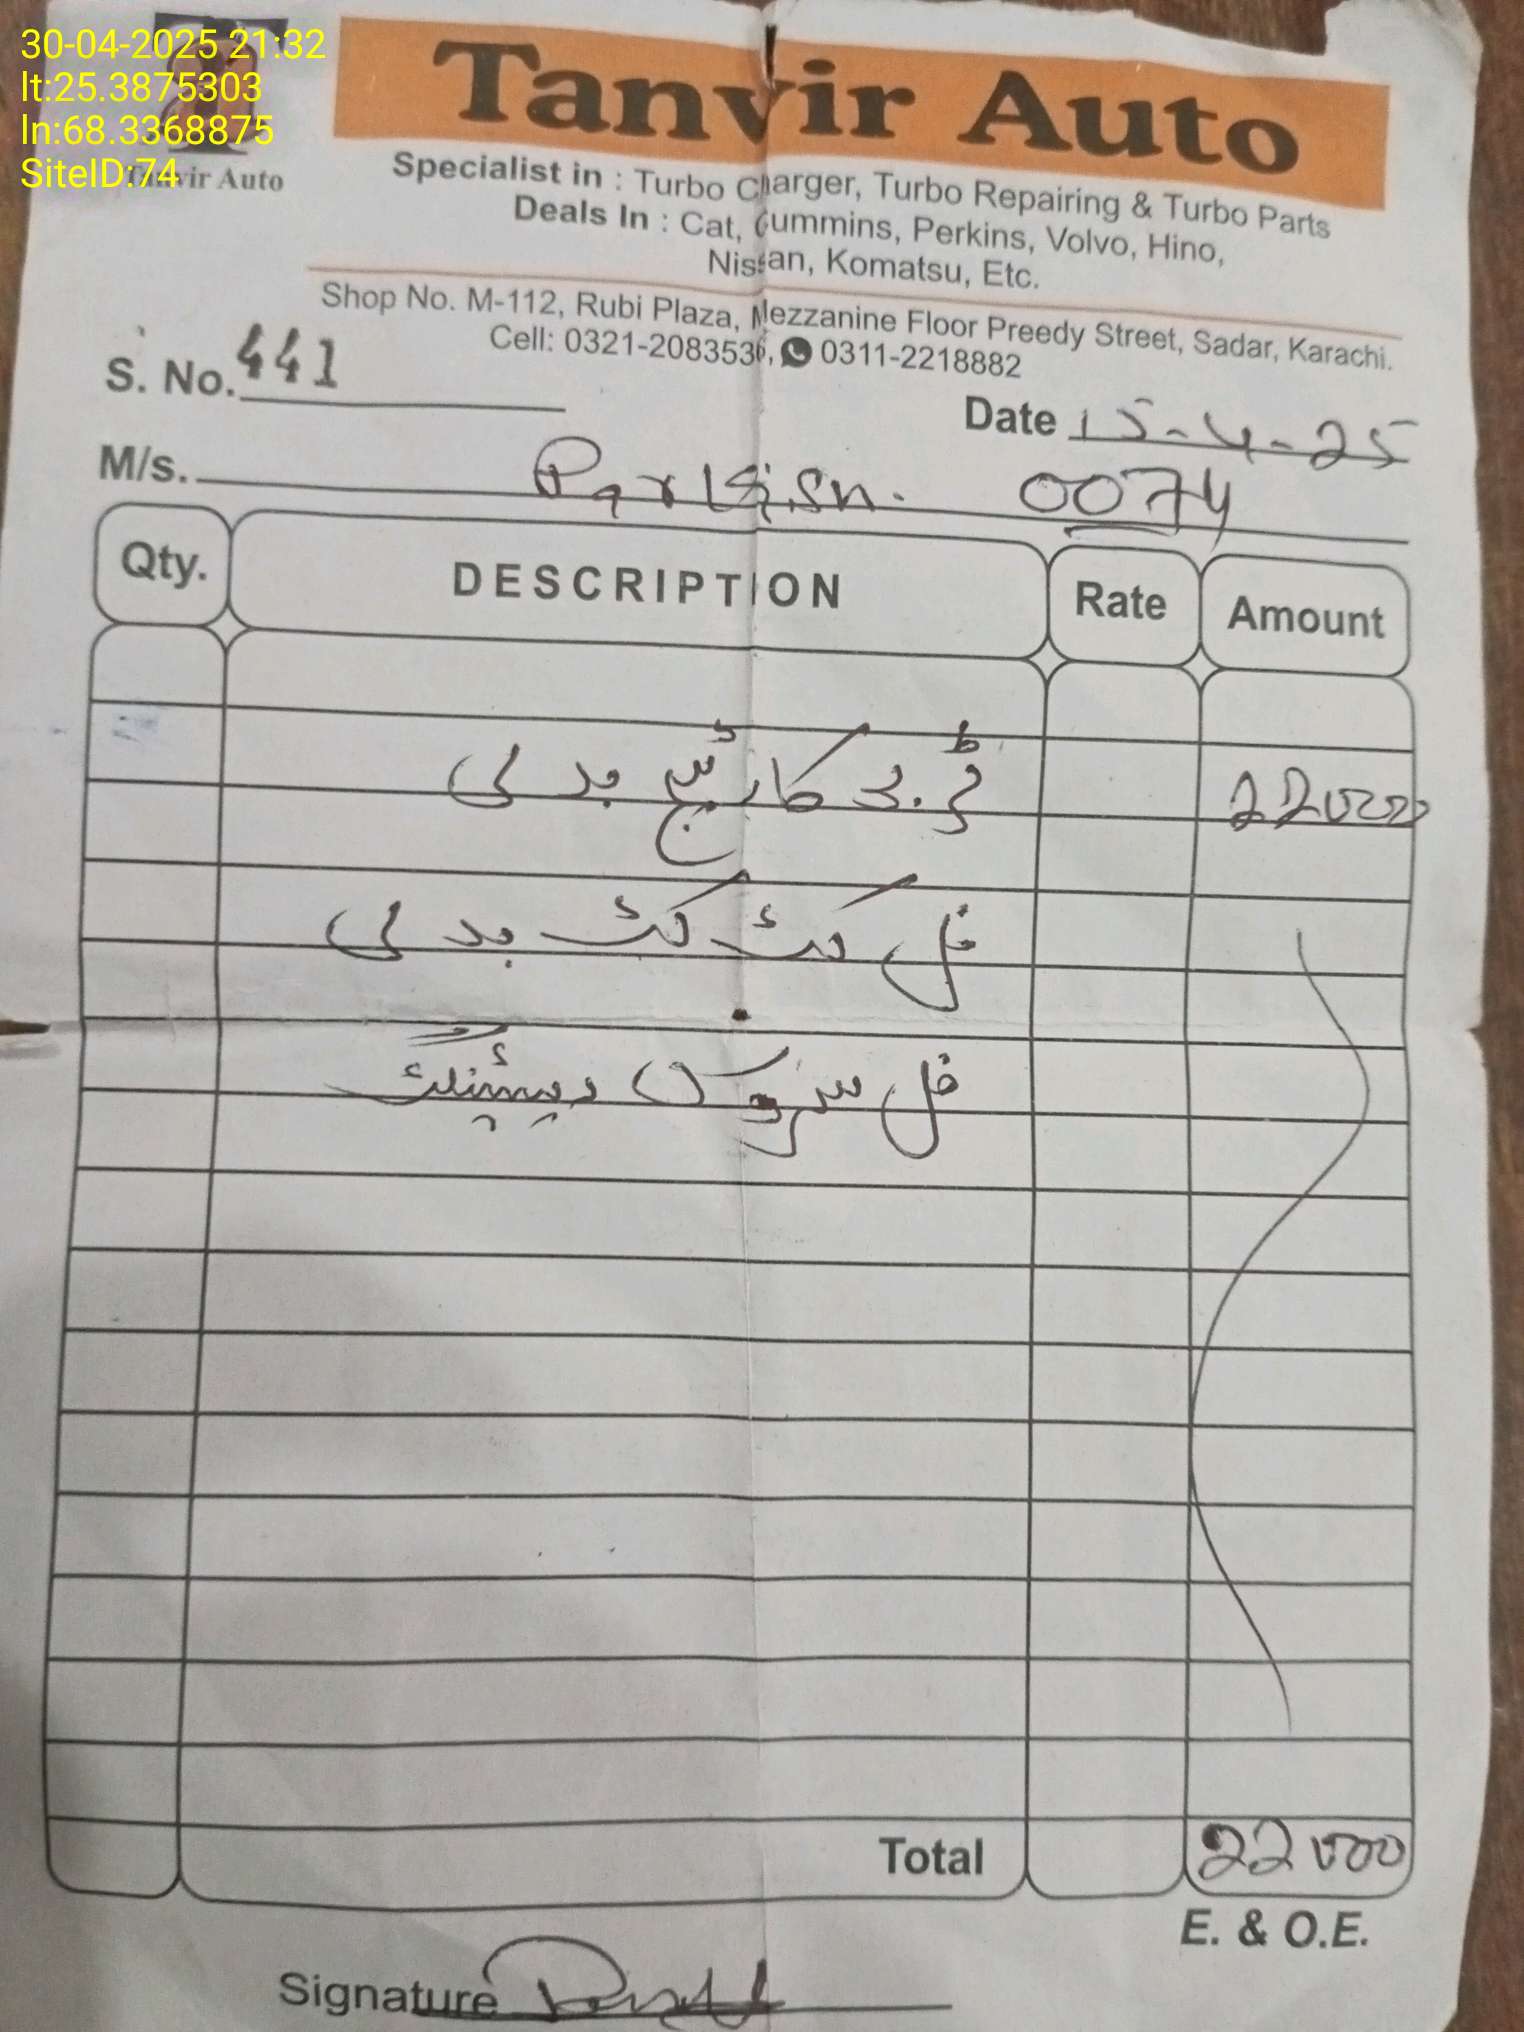 30-04-2025 21:32
lt:25.3875303
ln:68.3368875
SiteID:74
Tanvir Auto
Tanvir Auto
Specialist in : Turbo Charger, Turbo Repairing & Turbo Parts
Deals In : Cat, Cummins, Perkins, Volvo, Hino,
Nissan, Komatsu, Etc.
Shop No. M-112, Rubi Plaza, Mezzanine Floor Preedy Street, Sadar, Karachi.
Cell: 0321-2083536, 0311-2218882
S. No. 441
Date 15-4-25
M/s. 0074
Qty. DESCRIPTION Rate Amount
ٹربو کارٹیج بدلی 22000
فل کٹ کٹ بدلی
فل سروس
Total 22000
E. & O.E.
Signature